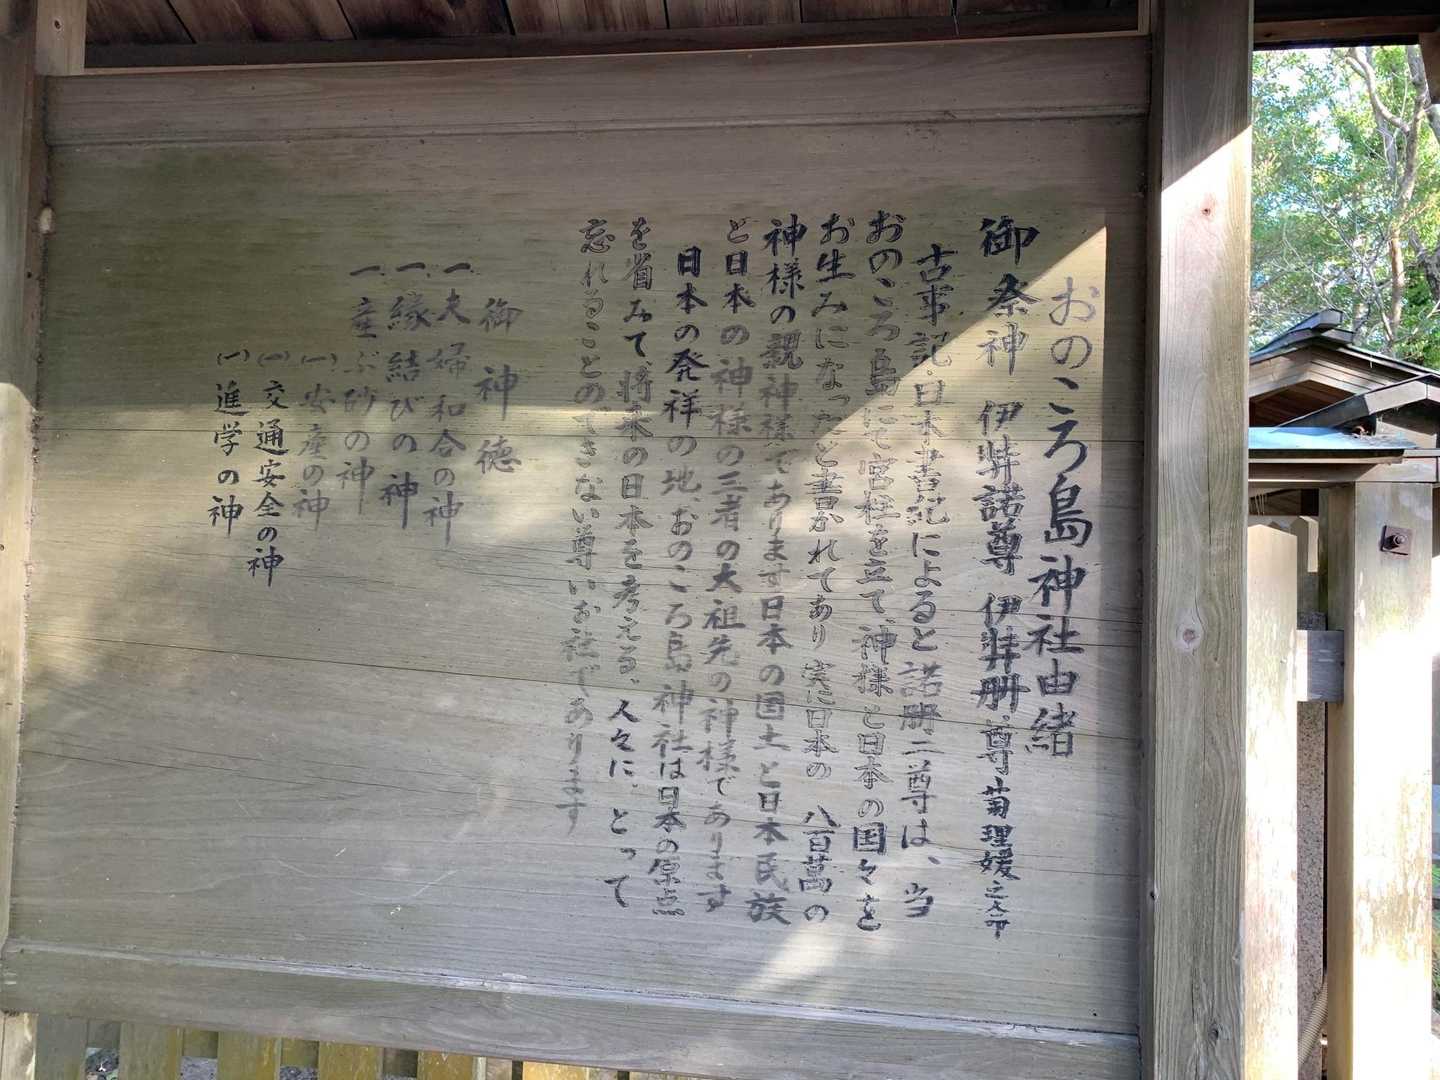 おのころ島神社由緒
御祭神 伊弉諾尊 伊弉冊尊 菊理媛之命
古事記・日本書紀によると諾冊二尊は、当
おのころ島にて宮柱を立て、神様と日本の国々を
お生みになったと書かれてあり 実に日本の 八百萬の
神様の親神様であります 日本の国土と日本民族
と日本の神様の三者の大祖先の神様であります
日本の発祥の地、おのころ島神社は日本の原点
を省みて、将来の日本を考える、人々に、とって
忘れることのできない尊いお社であります
御神徳
一、夫婦和合の神
一、縁結びの神
一、産ぶ砂の神
(一)安産の神
(一)交通安全の神
(一)進学の神